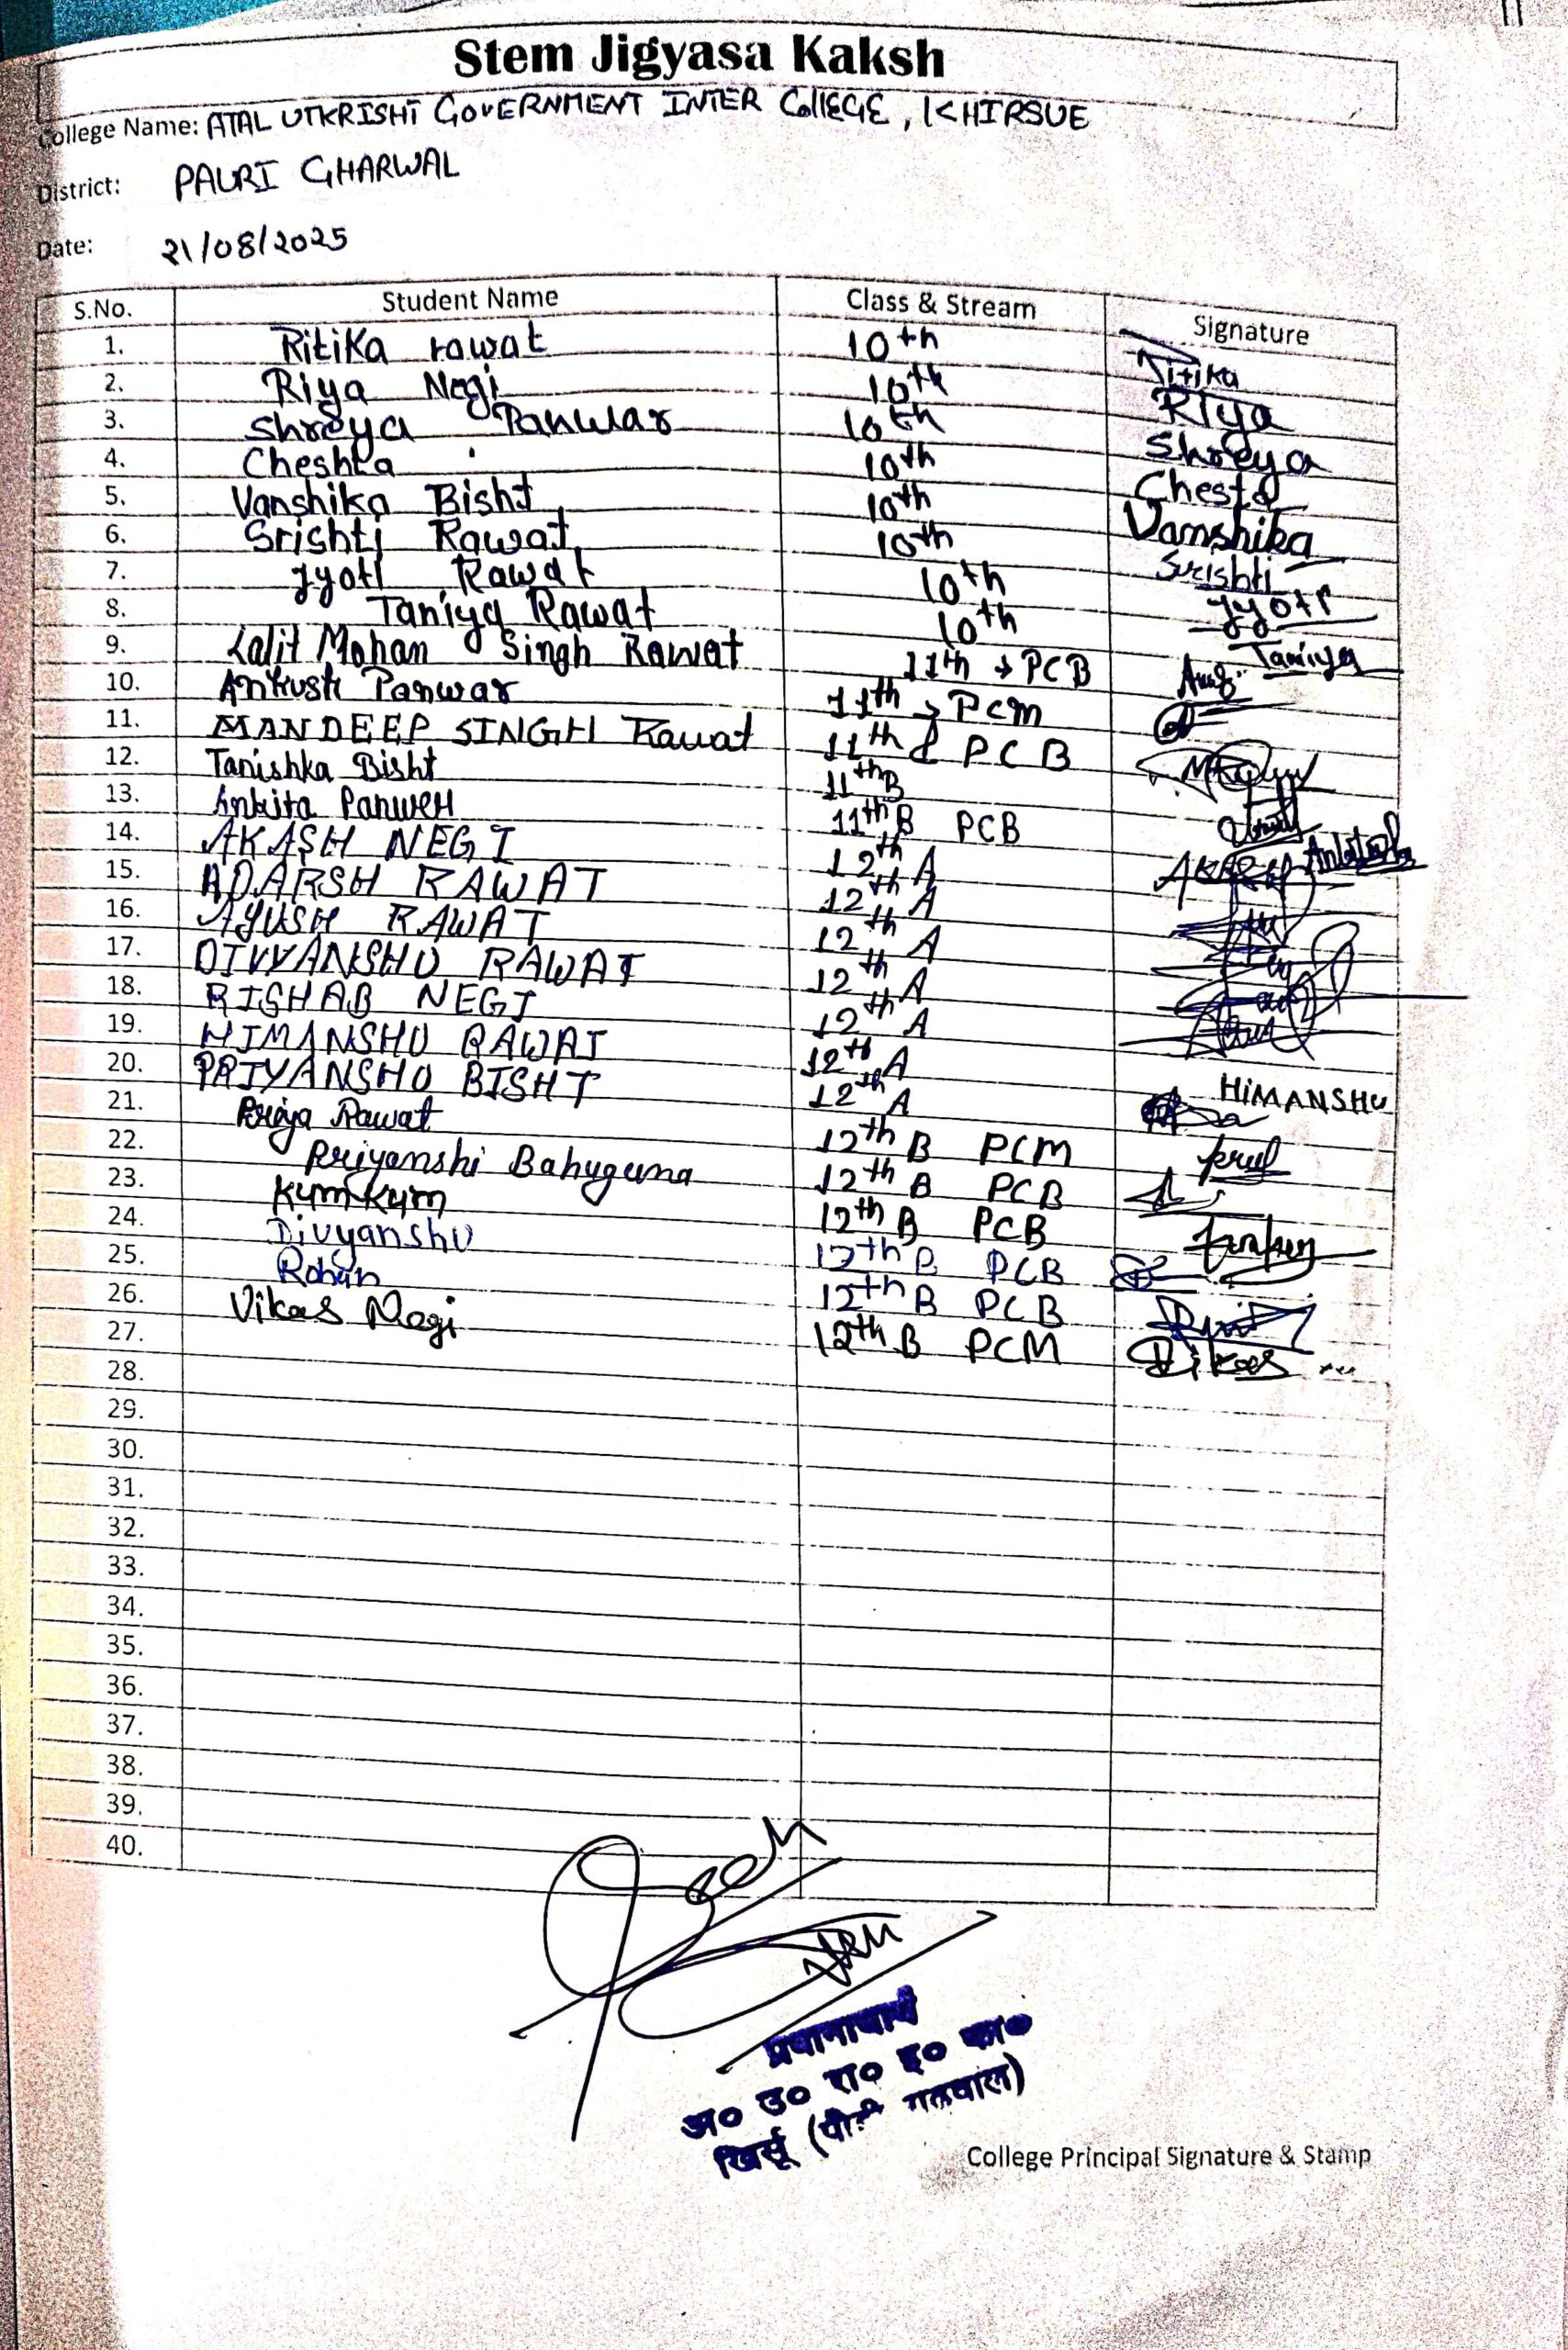 Stem Jigyasa Kaksh
College Name: ATAL UTKRISHT GOVERNMENT INTER COllEGE, KHIRSUE
District: PAURI GHARWAL
Date: 21/08/2025
S.No. Student Name Class & Stream Signature
1. Ritika rawat 10th Ritika
2. Riya Negi 10th Riya
3. Shreya Panwar 10th Shreya
4. Cheshta 10th Chesta
5. Vanshika Bisht 10th Vanshika
6. Srishti Rawat 10th Srishti
7. Jyoti Rawat 10th Jyoti
8. Taniya Rawat 10th Taniya
9. Lalit Mohan Singh Rawat 11th → PCB
10. Ankush Panwar 11th → PCM
11. MANDEEP SINGH Rawat 11th PCB
12. Tanishka Bisht 11th B
13. Ankita Panwer 11th B PCB
14. AKASH NEGI 12th A AKASH
15. ADARSH RAWAT 12th A
16. AYUSH RAWAT 12th A
17. DIVYANSHU RAWAT 12th A
18. RISHAB NEGI 12th A
19. HIMANSHU RAWAT 12th A HIMANSHU
20. PRIYANSHU BISHT 12th A
21. Priya Rawat 12th B PCM
22. Priyanshi Bahuguna 12th B PCB
23. Kumkum 12th B PCB
24. Divyanshu 12th B PCB
25. Rohan 12th B PCB
26. Vikas Negi 12th B PCM Vikas
27.
28.
29.
30.
31.
32.
33.
34.
35.
36.
37.
38.
39.
40.
प्रधानाचार्य
अ० उ० रा० इ० का०
खिर्सू (पौड़ी गढ़वाल)
College Principal Signature & Stamp